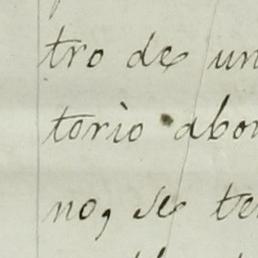 tro de un
torio abon
no, se te